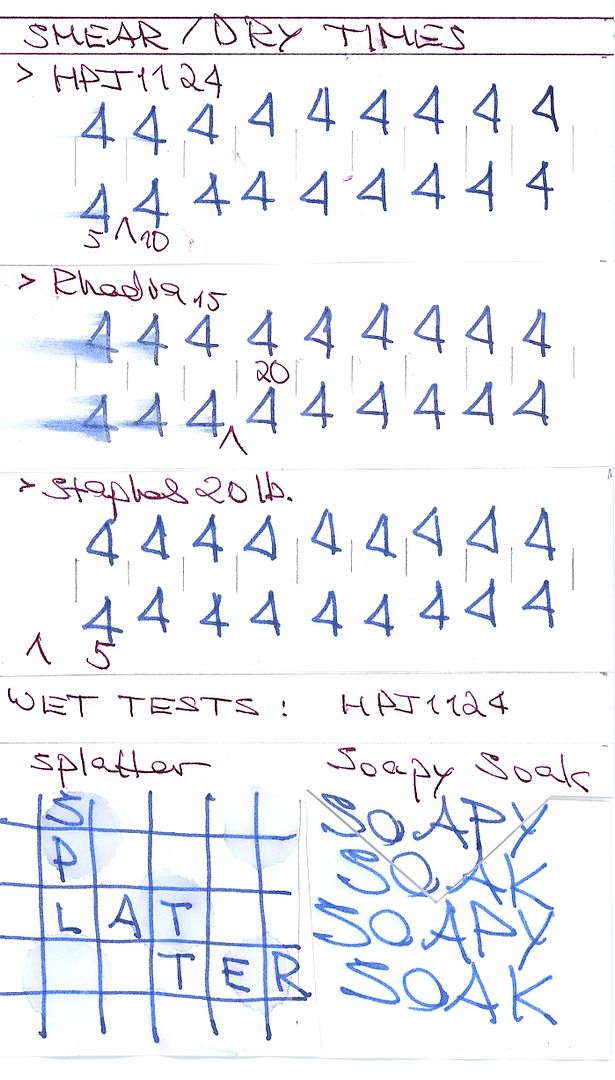 SMEAR / DRY TIMES
> HPJ1124
4 4 4 4 4 4 4 4 4
4 4 4 4 4 4 4 4 4
5 ^ 10
> Rhodia 15
4 4 4 4 4 4 4 4 4
20
4 4 4 4 4 4 4 4 4
^
> Staples 20 lb.
4 4 4 4 4 4 4 4 4
4 4 4 4 4 4 4 4 4
^ 5
WET TESTS : HPJ1124
splatter Soapy Soak
S
P
L A T
T E R
SOAPY
SOAK
SOAPY
SOAK